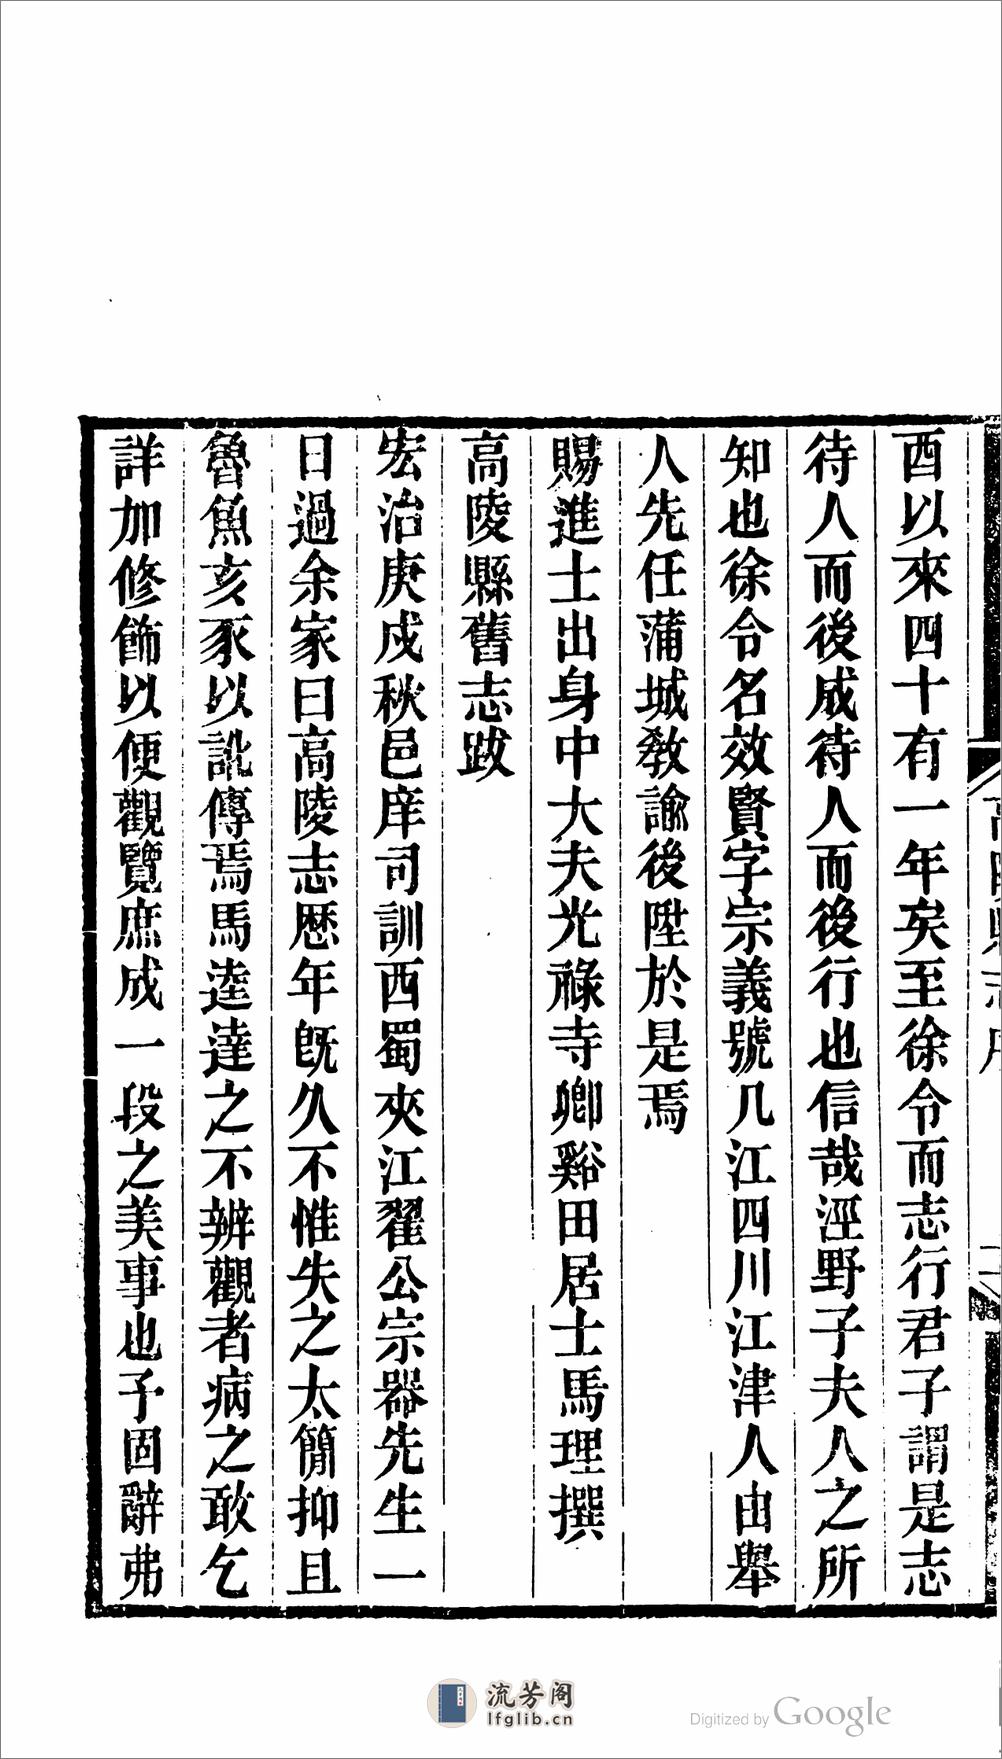 酉以來四十有一年矣至徐令而志行君子謂是志
待人而後成待人而後行也信哉涇野子夫人之所
知也徐令名效賢字宗義號几江四川江津人由舉
人先任蒲城教諭後陞於是焉
賜進士出身中大夫光祿寺卿谿田居士馬理撰
高陵縣舊志跋
宏治庚戌秋邑庠司訓西蜀夾江翟公宗器先生一
日過余家曰高陵志歷年旣久不惟失之太簡抑且
魯魚亥豕以訛傳焉馬逵達之不辨觀者病之敢乞
詳加修飾以便觀覽庶成一段之美事也予固辭弗
流芳阁
lfglib.cn
Digitized by Google